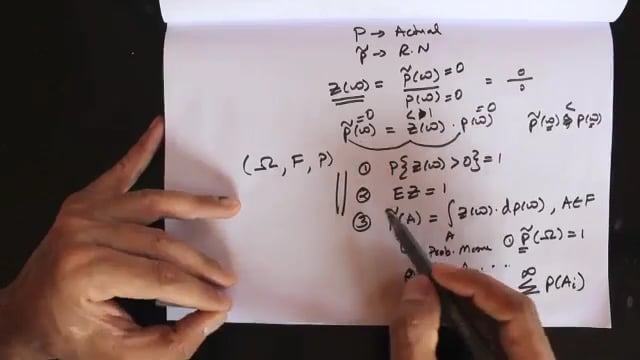 P → Actual
P̃ → R.N
Z(ω) = P̃(ω) = 0 / P(ω) = 0 = 0/0
P̃(ω) = Z(ω) · P(ω)
=0 < 1 =0
P̃(ω) < P(ω)
(Ω, F, P)
① P{Z(ω) > 0} = 1
② EZ = 1
③ P̃(A) = ∫_A Z(ω) · dP(ω), A ∈ F
Prob. ① P̃(Ω) = 1
∞ Σ P(Ai)